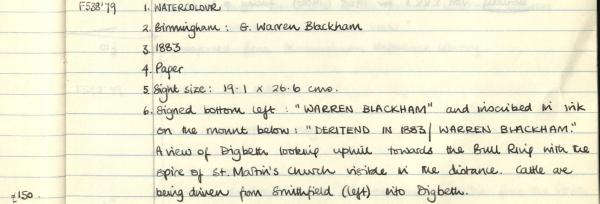 F538'79 1. WATERCOLOUR
2. Birmingham: G. Warren Blackham
3. 1883
4. Paper
5. Sight size: 19.1 x 26.6 cms.
6. Signed bottom left: "WARREN BLACKHAM" and inscribed in ink
on the mount below: "DERITEND IN 1883/ WARREN BLACKHAM."
A view of Digbeth looking uphill towards the Bull Ring with the
spire of St. Martin's Church visible in the distance. Cattle are
£150. being driven from Smithfield (left) into Digbeth.